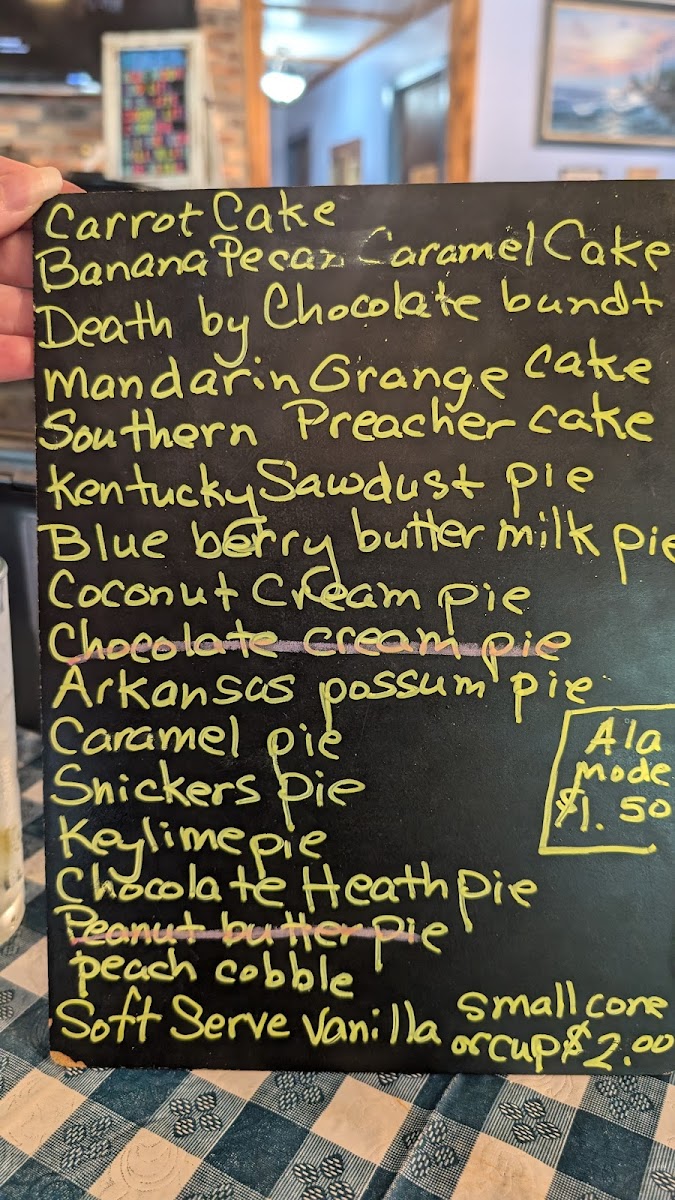 Carrot Cake
Banana Pecan Caramel Cake
Death by Chocolate bundt
Mandarin Orange cake
Southern Preacher cake
Kentucky Sawdust pie
Blue berry butter milk pie
Coconut Cream pie
Chocolate cream pie
Arkansas possum pie
Caramel pie
Snickers pie
Keylime pie
Chocolate Heath pie
Peanut butter pie
peach cobble
Soft Serve Vanilla small cone
or cup $2.00
Ala
mode
$1.50